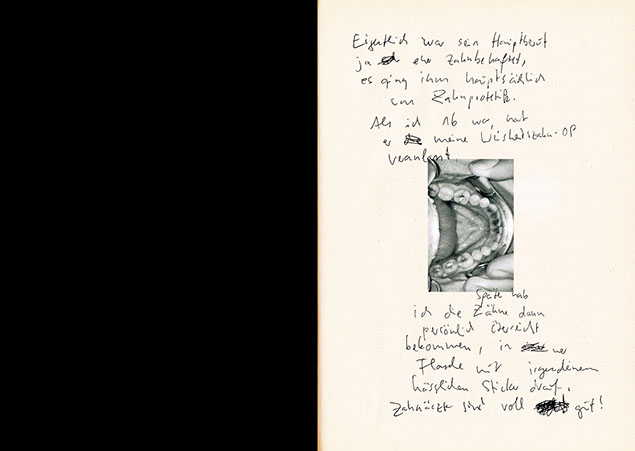 Eigentlich war sein Hauptberuf
ja eher Zahnbehaftet,
es ging ihm hauptsächlich
um Zahnprotetik.
Als ich 16 war, hat
er meine Weisheitszahn-OP
veranlasst
Später hab
ich die Zähne dann
persönlich überreicht
bekommen, in ner
Flasche mit irgendeinem
hässlichen Sticker drauf.
Zahnärzte sind voll gut!